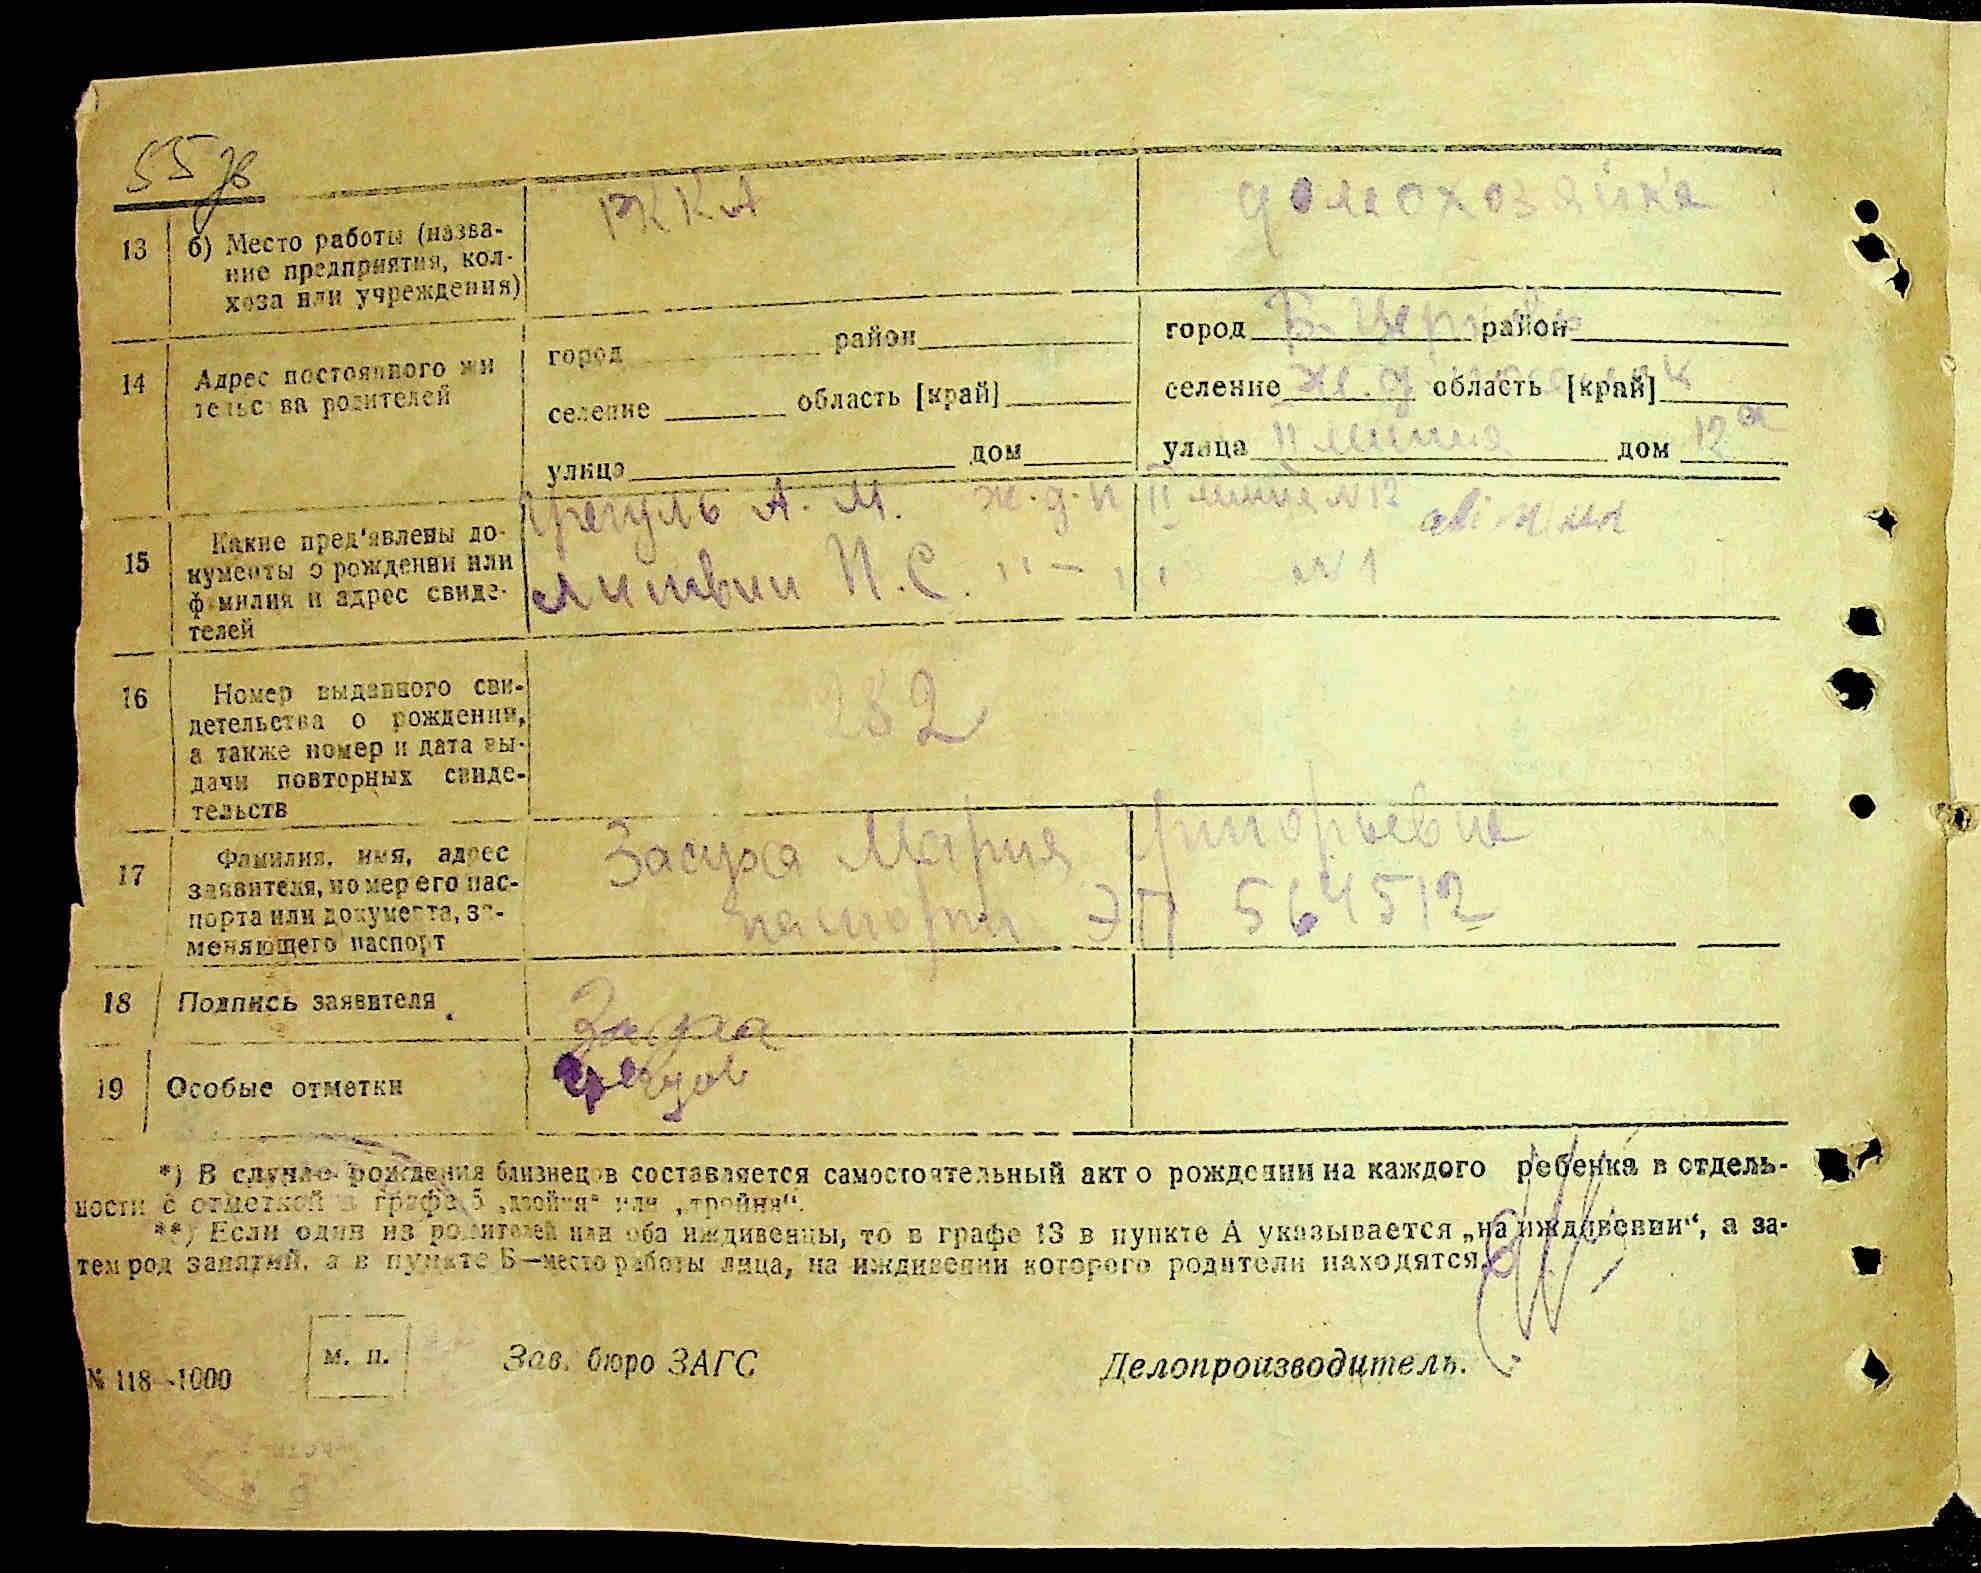 55
13 б) Место работы (назва-
ние предприятия, кол-
хоза или учреждения)
РККА
домохозяйка
14 Адрес постоянного жи
тельства родителей
город район
селение область [край]
улица дом
город Б. Церковь район
селение ж. д. поселок область [край]
улица II линия дом 12а
15 Какие пред'явлены до-
кументы о рождении или
фамилия и адрес свиде-
телей
А. М. ж. д. п II линия №12
Литвин П. С. "—" №1
16 Номер выданного сви-
детельства о рождении,
а также номер и дата вы-
дачи повторных свиде-
тельств
252
17 Фамилия, имя, адрес
заявителя, номер его пас-
порта или документа, за-
меняющего паспорт
Засуха Мария Григорьевна
паспорт ЭП 564512
18 Подпись заявителя
Засуха
19 Особые отметки
*) В случае рождения близнецов составляется самостоятельный акт о рождении на каждого ребенка в отдель-
ности с отметкой в графе 5 „двойня“ или „тройня“.
**) Если один из родителей или оба иждивенцы, то в графе 13 в пункте А указывается „на иждивении“, а за-
тем род занятий, а в пункте Б—место работы лица, на иждивении которого родители находятся.
м. п.
Зав. бюро ЗАГС
Делопроизводитель.
№ 118—1000